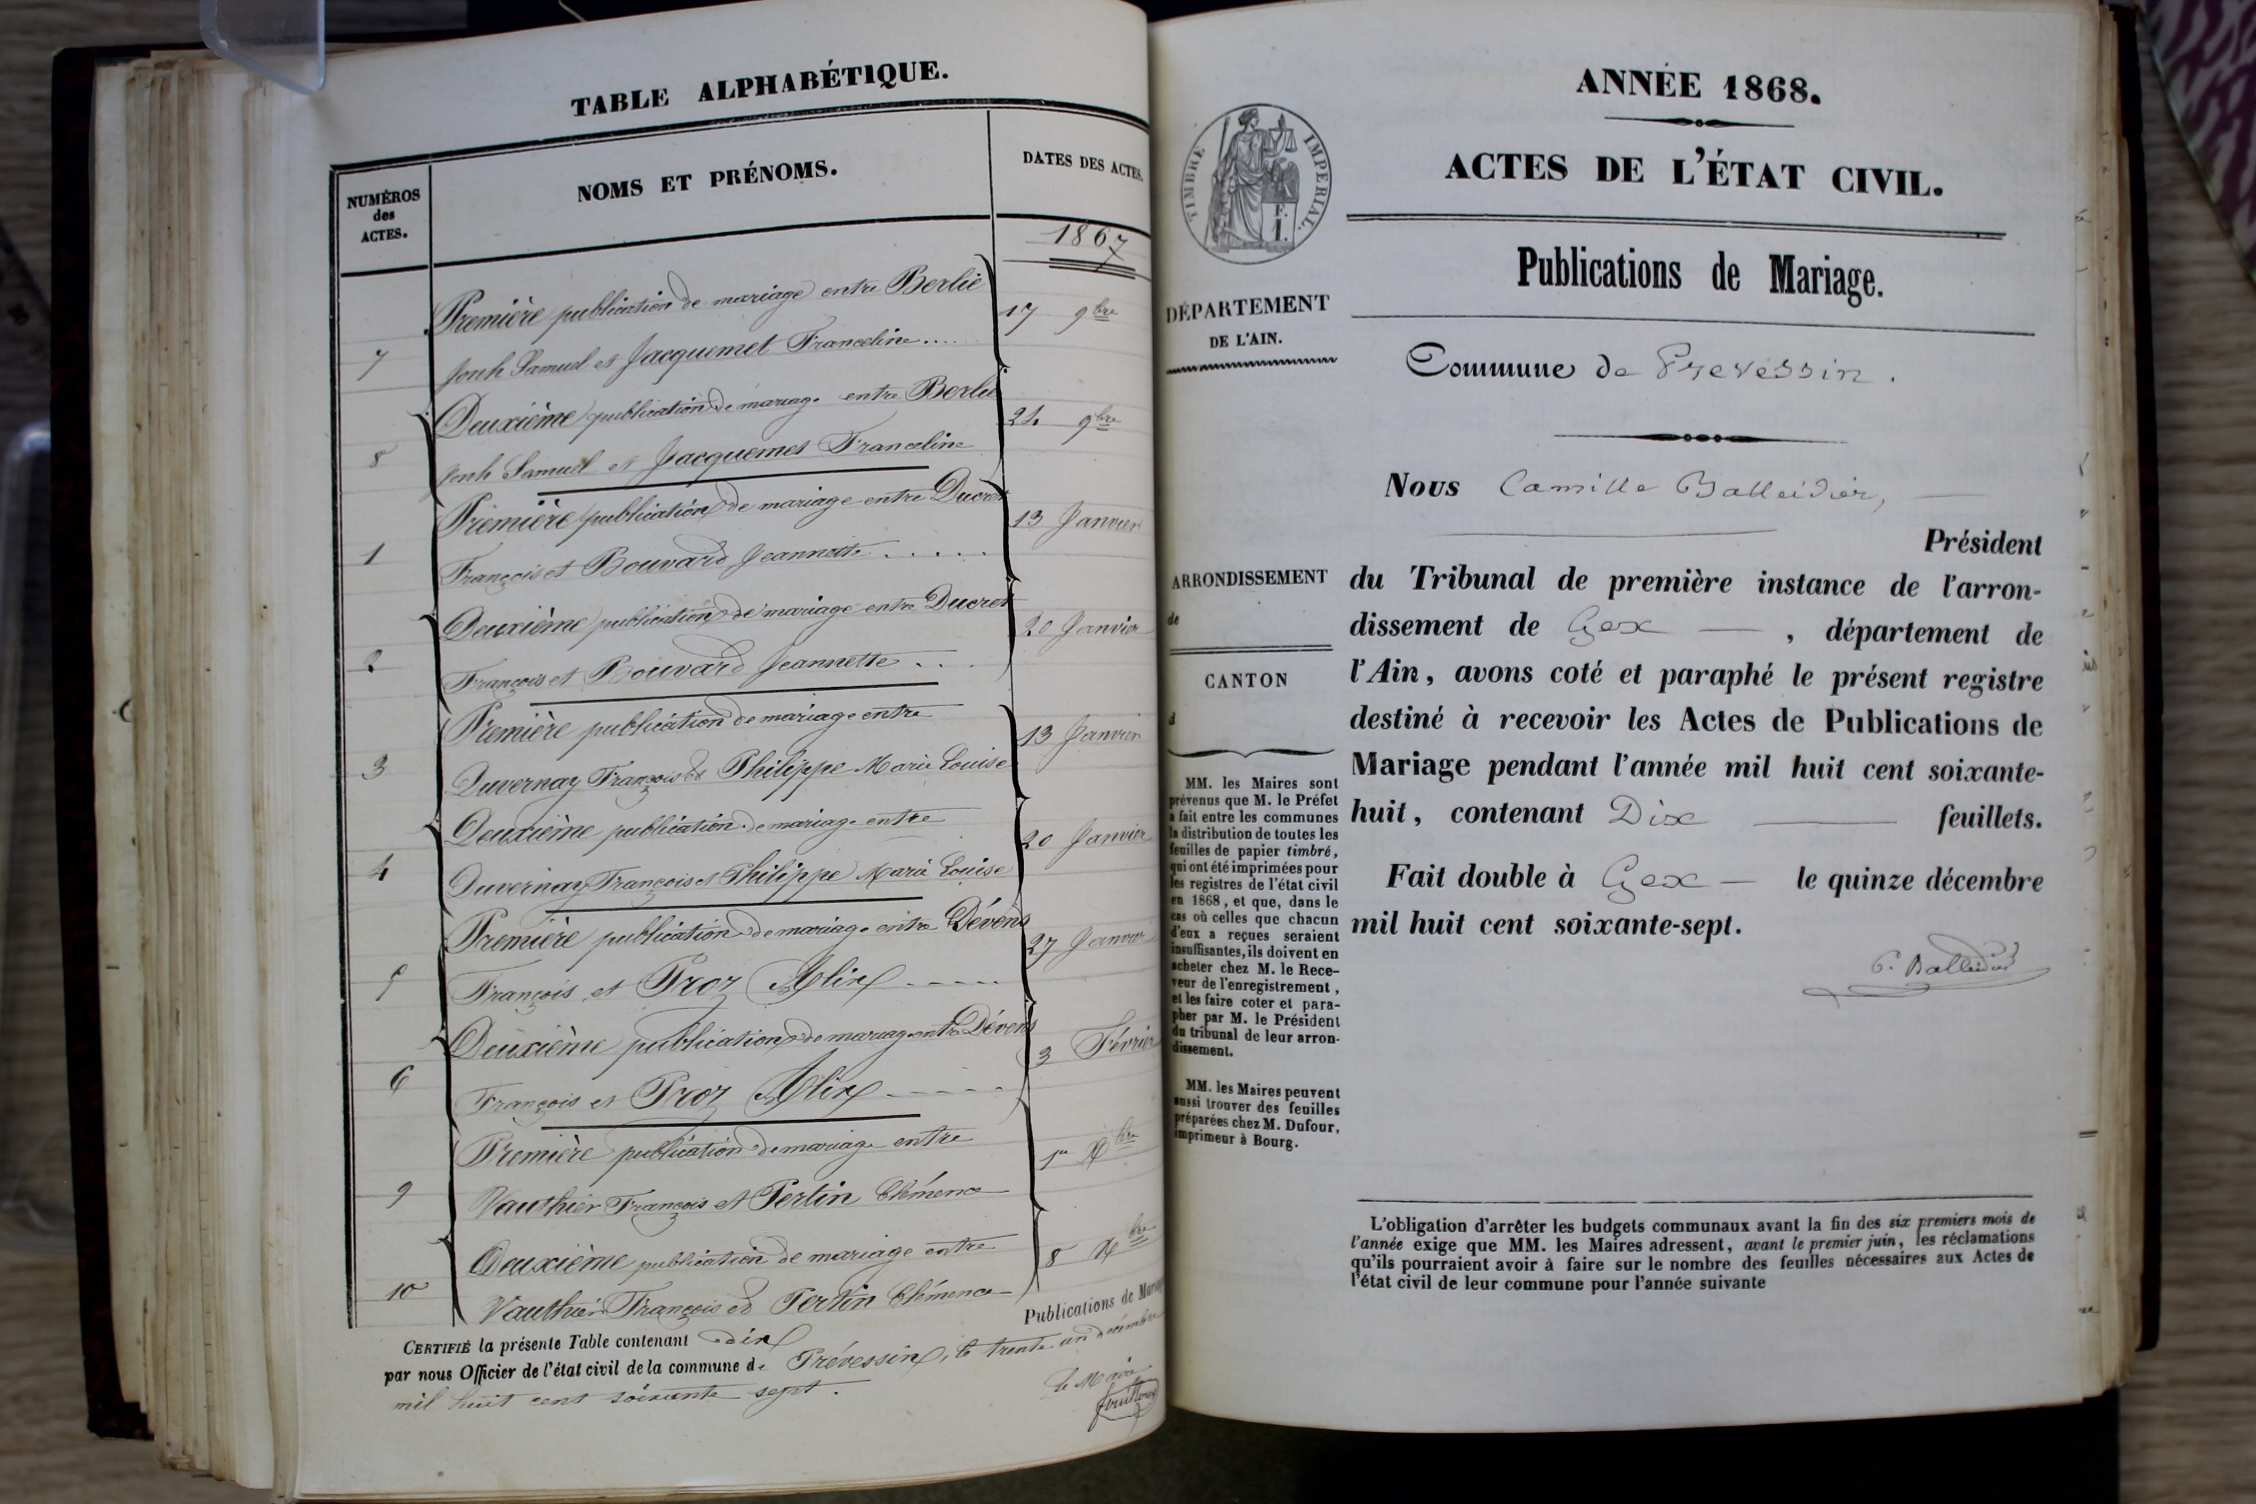 TABLE ALPHABÉTIQUE.
NUMÉROS
des
ACTES.
NOMS ET PRÉNOMS.
DATES DES ACTES.
1867
Première publication de mariage entre Berlie
7 Samuel et Jacquemet Franceline....
17 9bre
Deuxième publication de mariage entre Berlie
8 Samuel et Jacquemet Franceline
24 9bre
Première publication de mariage entre Ducret
1 François et Bouvard Jeannette.....
13 Janvier
Deuxième publication de mariage entre Ducret
2 François et Bouvard Jeannette...
20 Janvier
Première publication de mariage entre
3 Duvernay François et Philippe Marie Louise
13 Janvier
Deuxième publication de mariage entre
4 Duvernay François et Philippe Marie Louise
20 Janvier
Première publication de mariage entre Dévens
5 François et Proz Alix
27 Janvier
Deuxième publication de mariage entre Dévens
6 François et Proz Alix
3 Février
Première publication de mariage entre
9 Vauthier François et Pertin Clémence
1er Xbre
Deuxième publication de mariage entre
10 Vauthier François et Pertin Clémence
8 Xbre
CERTIFIÉ la présente Table contenant dix Publications de Mariage
par nous Officier de l'état civil de la commune de Prévessin, le trente un décembre
mil huit cent soixante sept.
le Maire
TIMBRE IMPÉRIAL.
ANNÉE 1868.
ACTES DE L'ÉTAT CIVIL.
Publications de Mariage.
DÉPARTEMENT
DE L'AIN.
Commune de Prevessin.
Nous Camille Balleidier,
Président
ARRONDISSEMENT
de
CANTON
d
du Tribunal de première instance de l'arron-
dissement de Gex, département de
l'Ain, avons coté et paraphé le présent registre
destiné à recevoir les Actes de Publications de
Mariage pendant l'année mil huit cent soixante-
huit, contenant Dix feuillets.
Fait double à Gex le quinze décembre
mil huit cent soixante-sept.
C. Balleidier
MM. les Maires sont
prévenus que M. le Préfet
a fait entre les communes
la distribution de toutes les
feuilles de papier timbré,
qui ont été imprimées pour
les registres de l'état civil
en 1868, et que, dans le
cas où celles que chacun
d'eux a reçues seraient
insuffisantes, ils doivent en
acheter chez M. le Rece-
veur de l'enregistrement,
et les faire coter et para-
pher par M. le Président
du tribunal de leur arron-
dissement.
MM. les Maires peuvent
aussi trouver des feuilles
préparées chez M. Dufour,
imprimeur à Bourg.
L'obligation d'arrêter les budgets communaux avant la fin des six premiers mois de
l'année exige que MM. les Maires adressent, avant le premier juin, les réclamations
qu'ils pourraient avoir à faire sur le nombre des feuilles nécessaires aux Actes de
l'état civil de leur commune pour l'année suivante